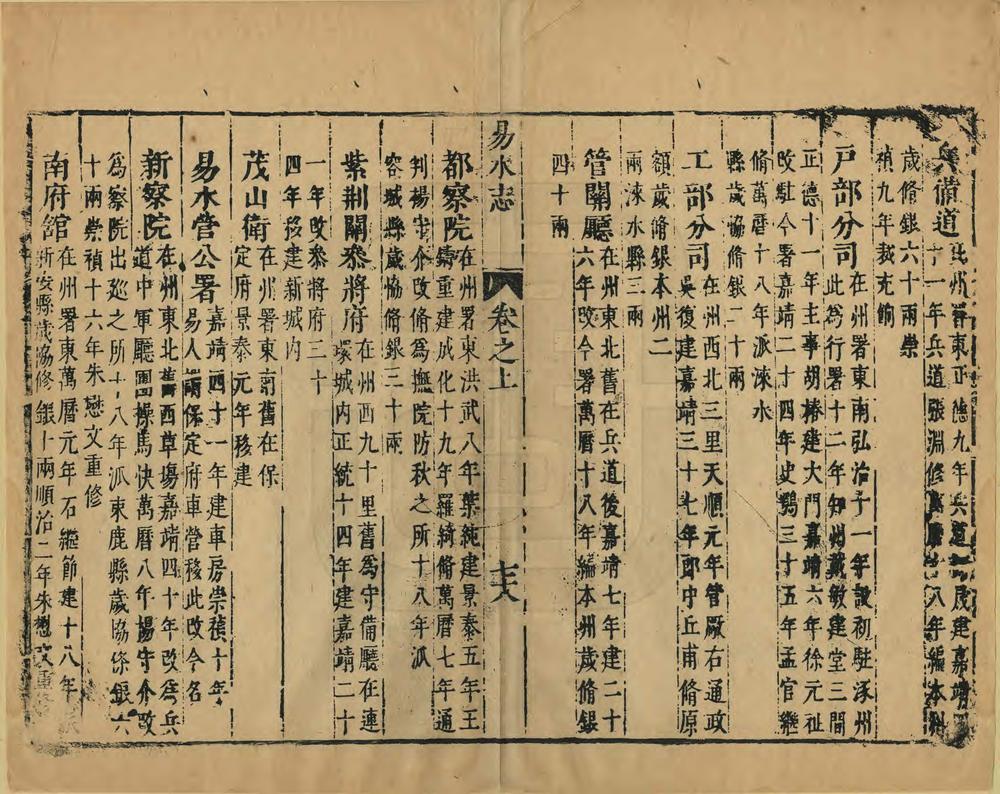 兵備道在州署東正德九年兵道建嘉靖
十一年兵道張淵修萬曆十八年編本州
歲修銀六十兩崇
禎九年裁充餉
戶部分司在州署東南弘治十一年設初駐涿州
此為行署十二年知州戴敏建堂三間
正德十一年主事胡椿建大門嘉靖六年徐元祉
改駐今署嘉靖二十四年史鶚三十五年孟官繼
脩萬曆十八年派淶水
縣歲協脩銀二十兩
工部分司在州西北三里天順元年管厰右通政
吳復建嘉靖三十七年郎中丘甫脩原
額歲脩銀本州二
兩淶水縣三兩
管關廳在州東北舊在兵道後嘉靖七年建二十
六年改今署萬曆十八年編本州歲脩銀
四十兩
易水志
卷之上
都察院在州署東洪武八年葉純建景泰五年王
鑄重建成化十九年羅綺脩萬曆七年通
判楊守介改脩為撫院防秋之所十八年派
容城縣歲協脩銀三十兩
紫荆關叅將府在州西九十里舊為守備廳在連
環城内正統十四年建嘉靖二十
一年改叅將府三十
四年移建新城内
茂山衛在州署東前舊在保
定府景泰元年移建
易水管公署嘉靖四十一年建車房崇禎十年
易人兩保定府車營移此改今名
新察院在州東北舊西草塲嘉靖四十年改為兵
道中軍廳團操馬快萬曆八年楊守介改
為察院出廵之所十八年派東鹿縣歲協脩銀六
十兩崇禎十六年朱懋文重修
南府舘在州署東萬曆元年石繼節建十八年
新安縣歲協修銀十兩順治二年朱懋文重修